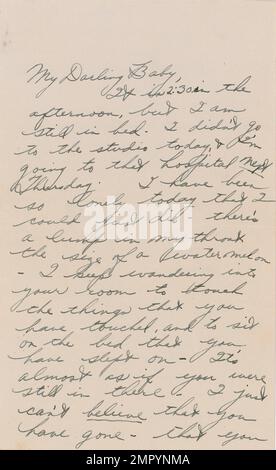 My Darling Baby,
It is 2:30 in the
afternoon, but I am
still in bed. I didn't go
to the studio today, & I'm
going to the hospital next
Thursday. I have been
so lonely today that I
could just die. there's
a lump in my throat
the size of a watermelon
- I keep wandering into
your room to touch
the things that you
have touched, and to sit
on the bed that you
have slept on - It's
almost as if you were
still in there. - I just
can't believe that you
have gone - that you
alamy
Image ID: 2MPYNMA
www.alamy.com